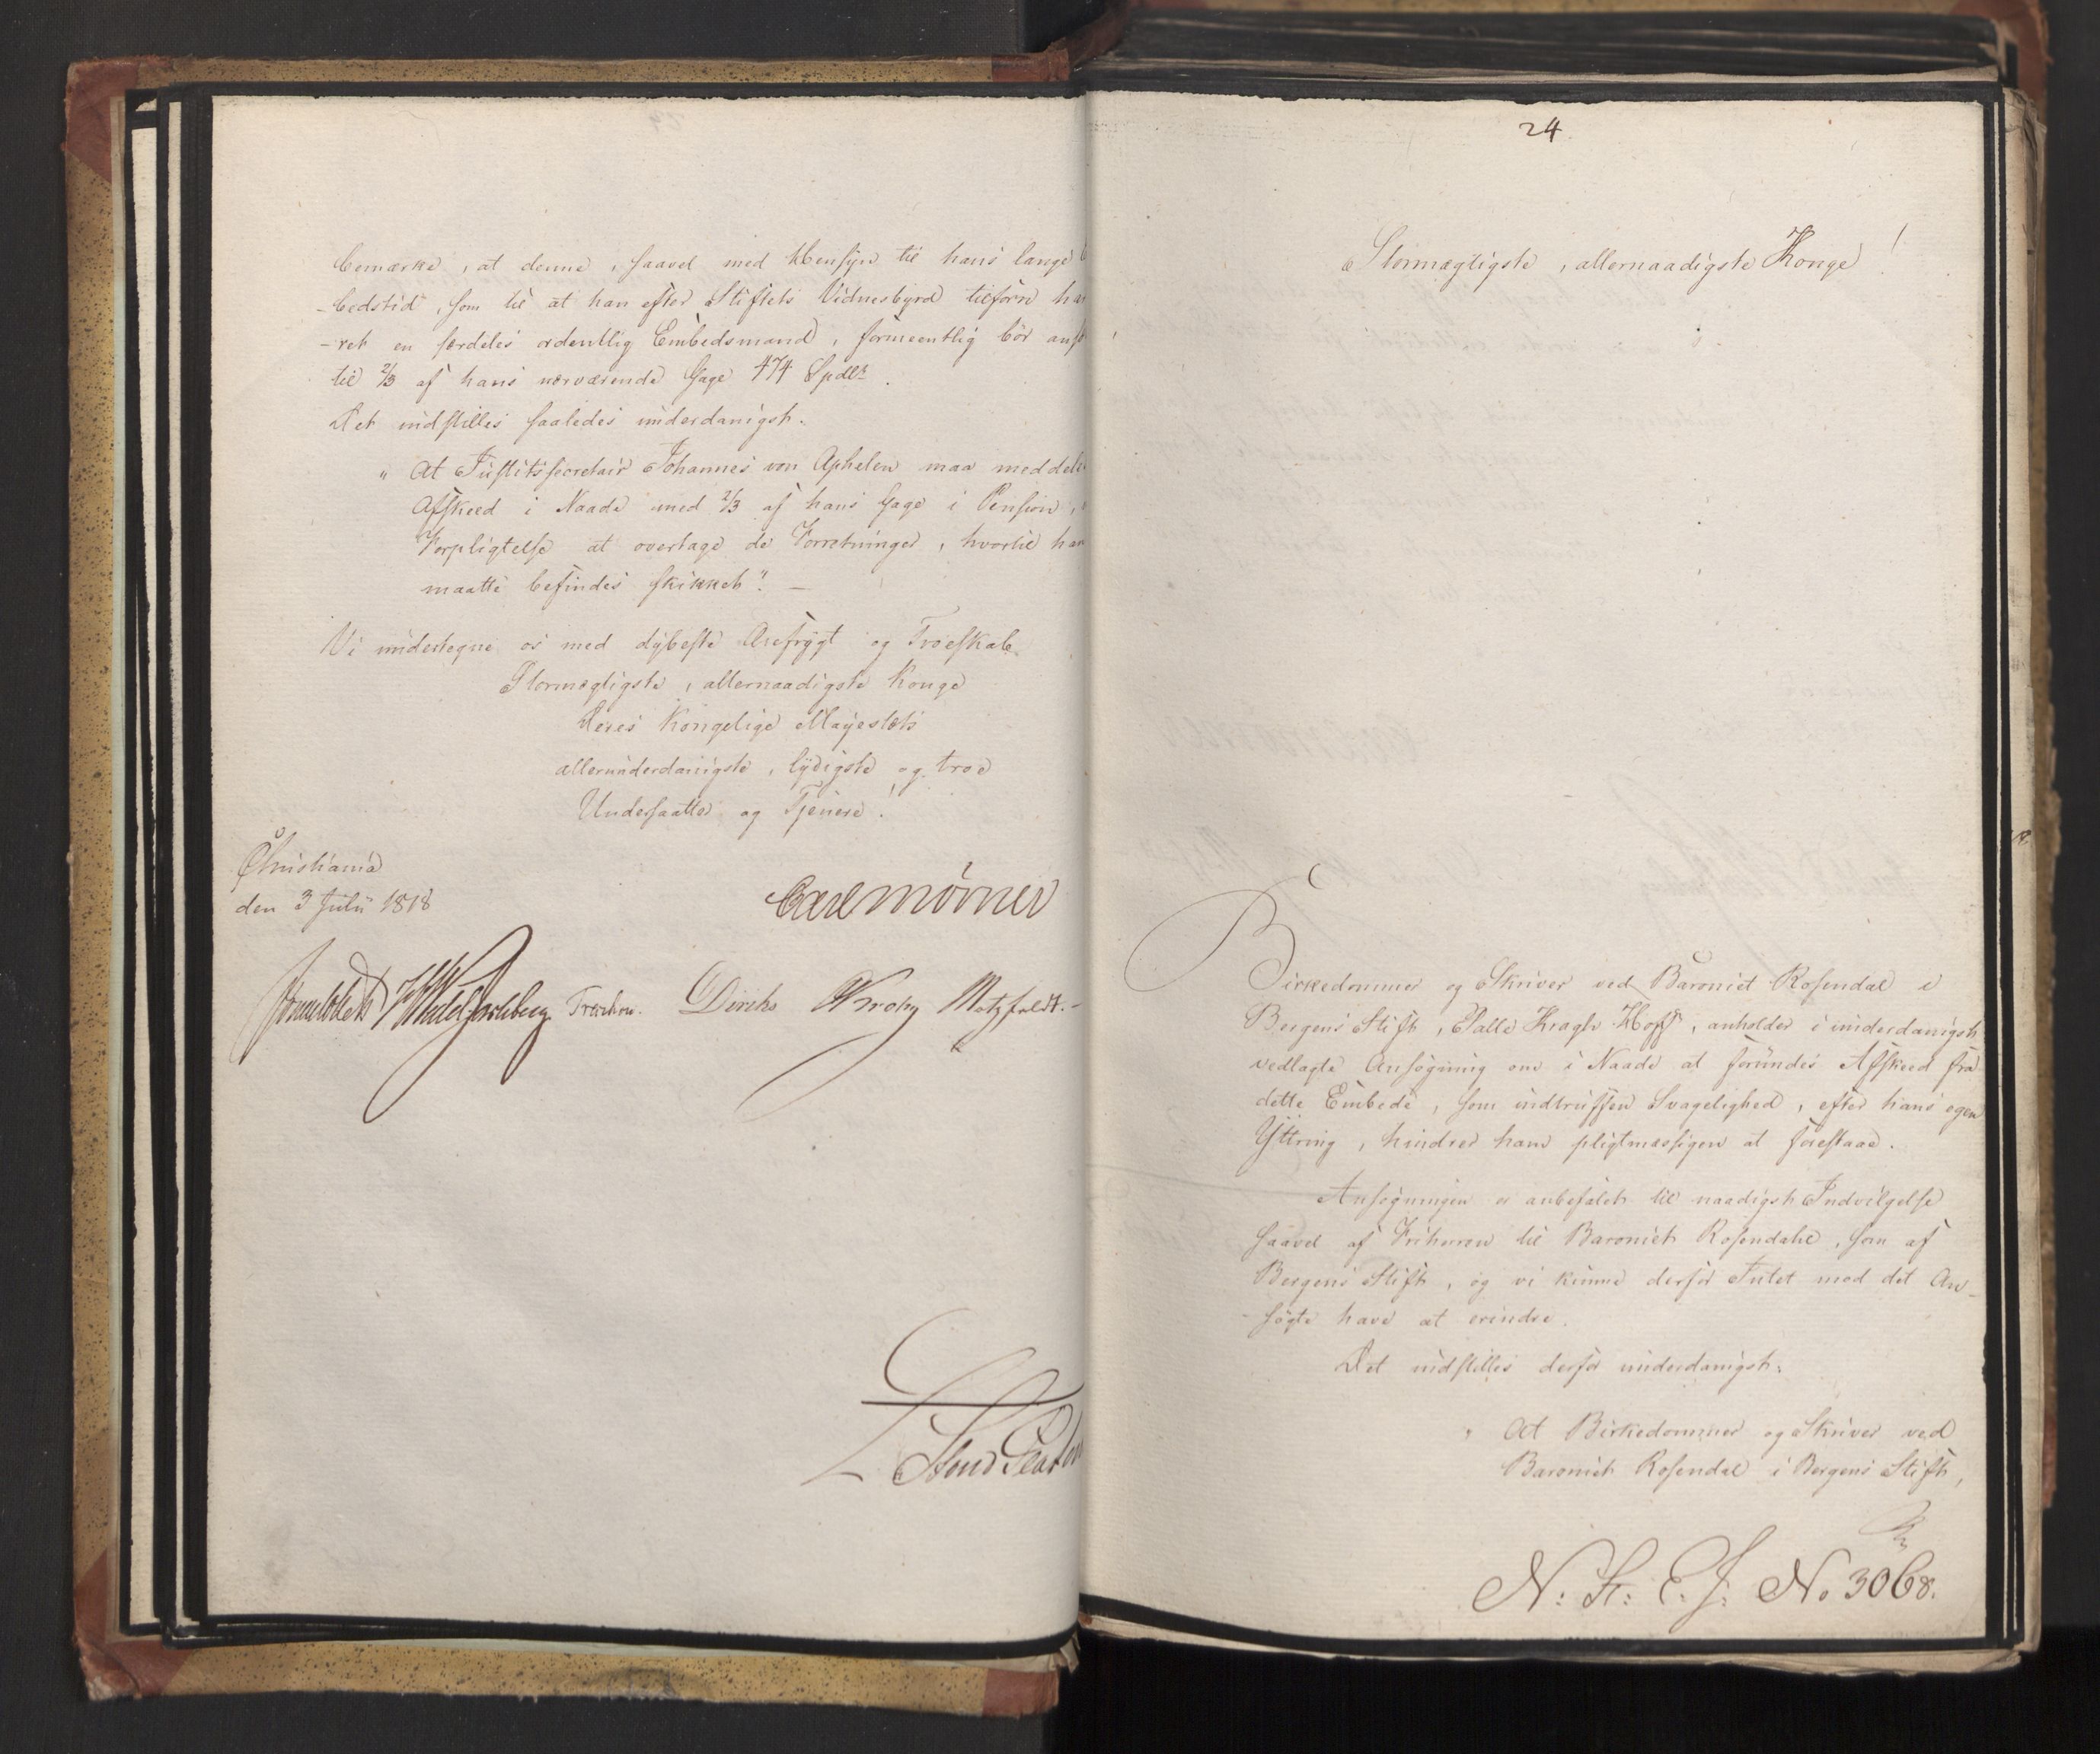 bemærke, at denne, saavel med Hensyn til hans lange
-bedstid, som til at han efter Stiftets Vidnesbyrd tilforn ha
-ret en særdeles ordentlig Embedsmand, formeentlig bör
til 2/3 af hans nærværende Gage 474 Spdlr.
Det indstilles saaledes underdanigst.
" At Justitssecretair Johannes von Aphelen maa meddele
Afskeed i Naade med 2/3 af hans Gage i Pension,
Forpligtelse at overtage de Forretninger, hvortil han
maatte befindes skikket". —
Vi undertegne os med dybeste Ærefrygt og Troeskab
Stormægtigste, allernaadigste Konge
Deres Kongelige Mayestæts
allerunderdanigste, lydigste og troe
Undersaatter og Tjenere!
Christiania
den 3 Julii 1818
Carl Mörner
Sommerhielm HWedel Jarlsberg Treschow. Diriks Krohg Motzfeldt.
24
Stormægtigste, allernaadigste Konge!
Birkedommer og Skriver ved Baroniet Rosendal i
Bergens Stift, Palle Kragh Hoff, anholder i underdanigst
vedlagte Ansögning om i Naade at forundes Afskeed fra
dette Embede, som indtruffen Svagelighed, efter hans egen
Yttring, hindrer ham pligtmæssigen at forestaae.
Ansögningen er anbefalet til naadigst Indvilgelse
saavel af Friherren til Baroniet Rosendahl, som af
Bergens Stift, og vi kunne derfor Intet mod det An-
-sögte have at erindre.
Det indstilles derfor underdanigst:
" At Birkedommer og Skriver ved
Baroniet Rosendal i Bergens Stift,
N: St: E. J: No 3068.